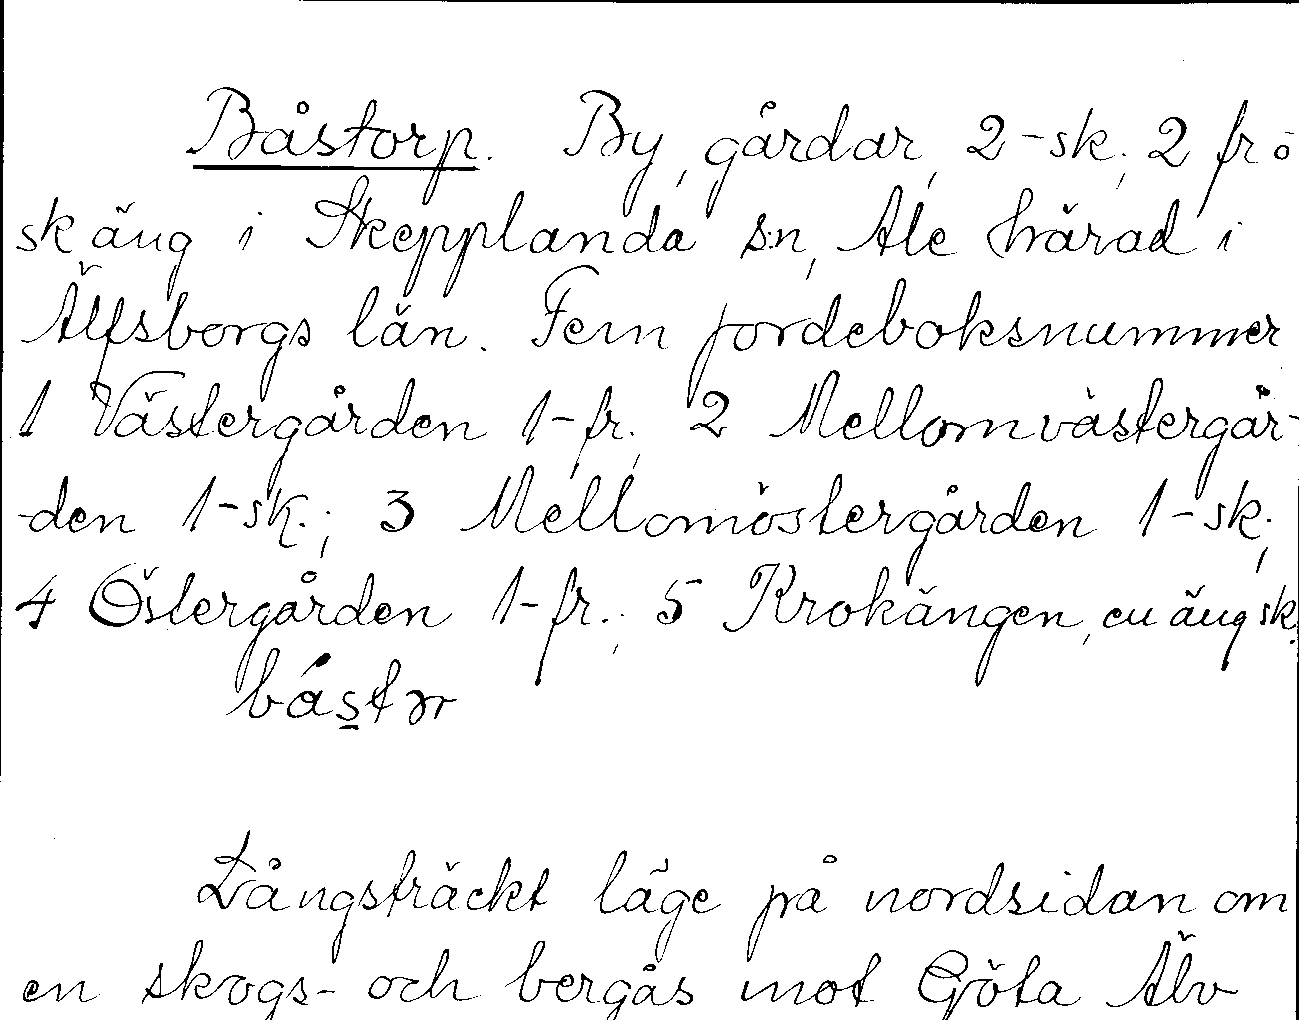 Båstorp. By, gårdar, 2-sk; 2 fr ö
sk äng i Skepplanda s:n, Ale härad i
Älfsborgs län. Fem jordeboksnummer
1 Västergården 1-fr.; 2 Mellomvästergår-
-den 1-sk.; 3 Mellomöstergården 1-sk.;
4 Östergården 1-fr.; 5 Krokängen, en äng sk.
båstər
Långsträckt läge på nordsidan om
en skogs- och bergås mot Göta Älv